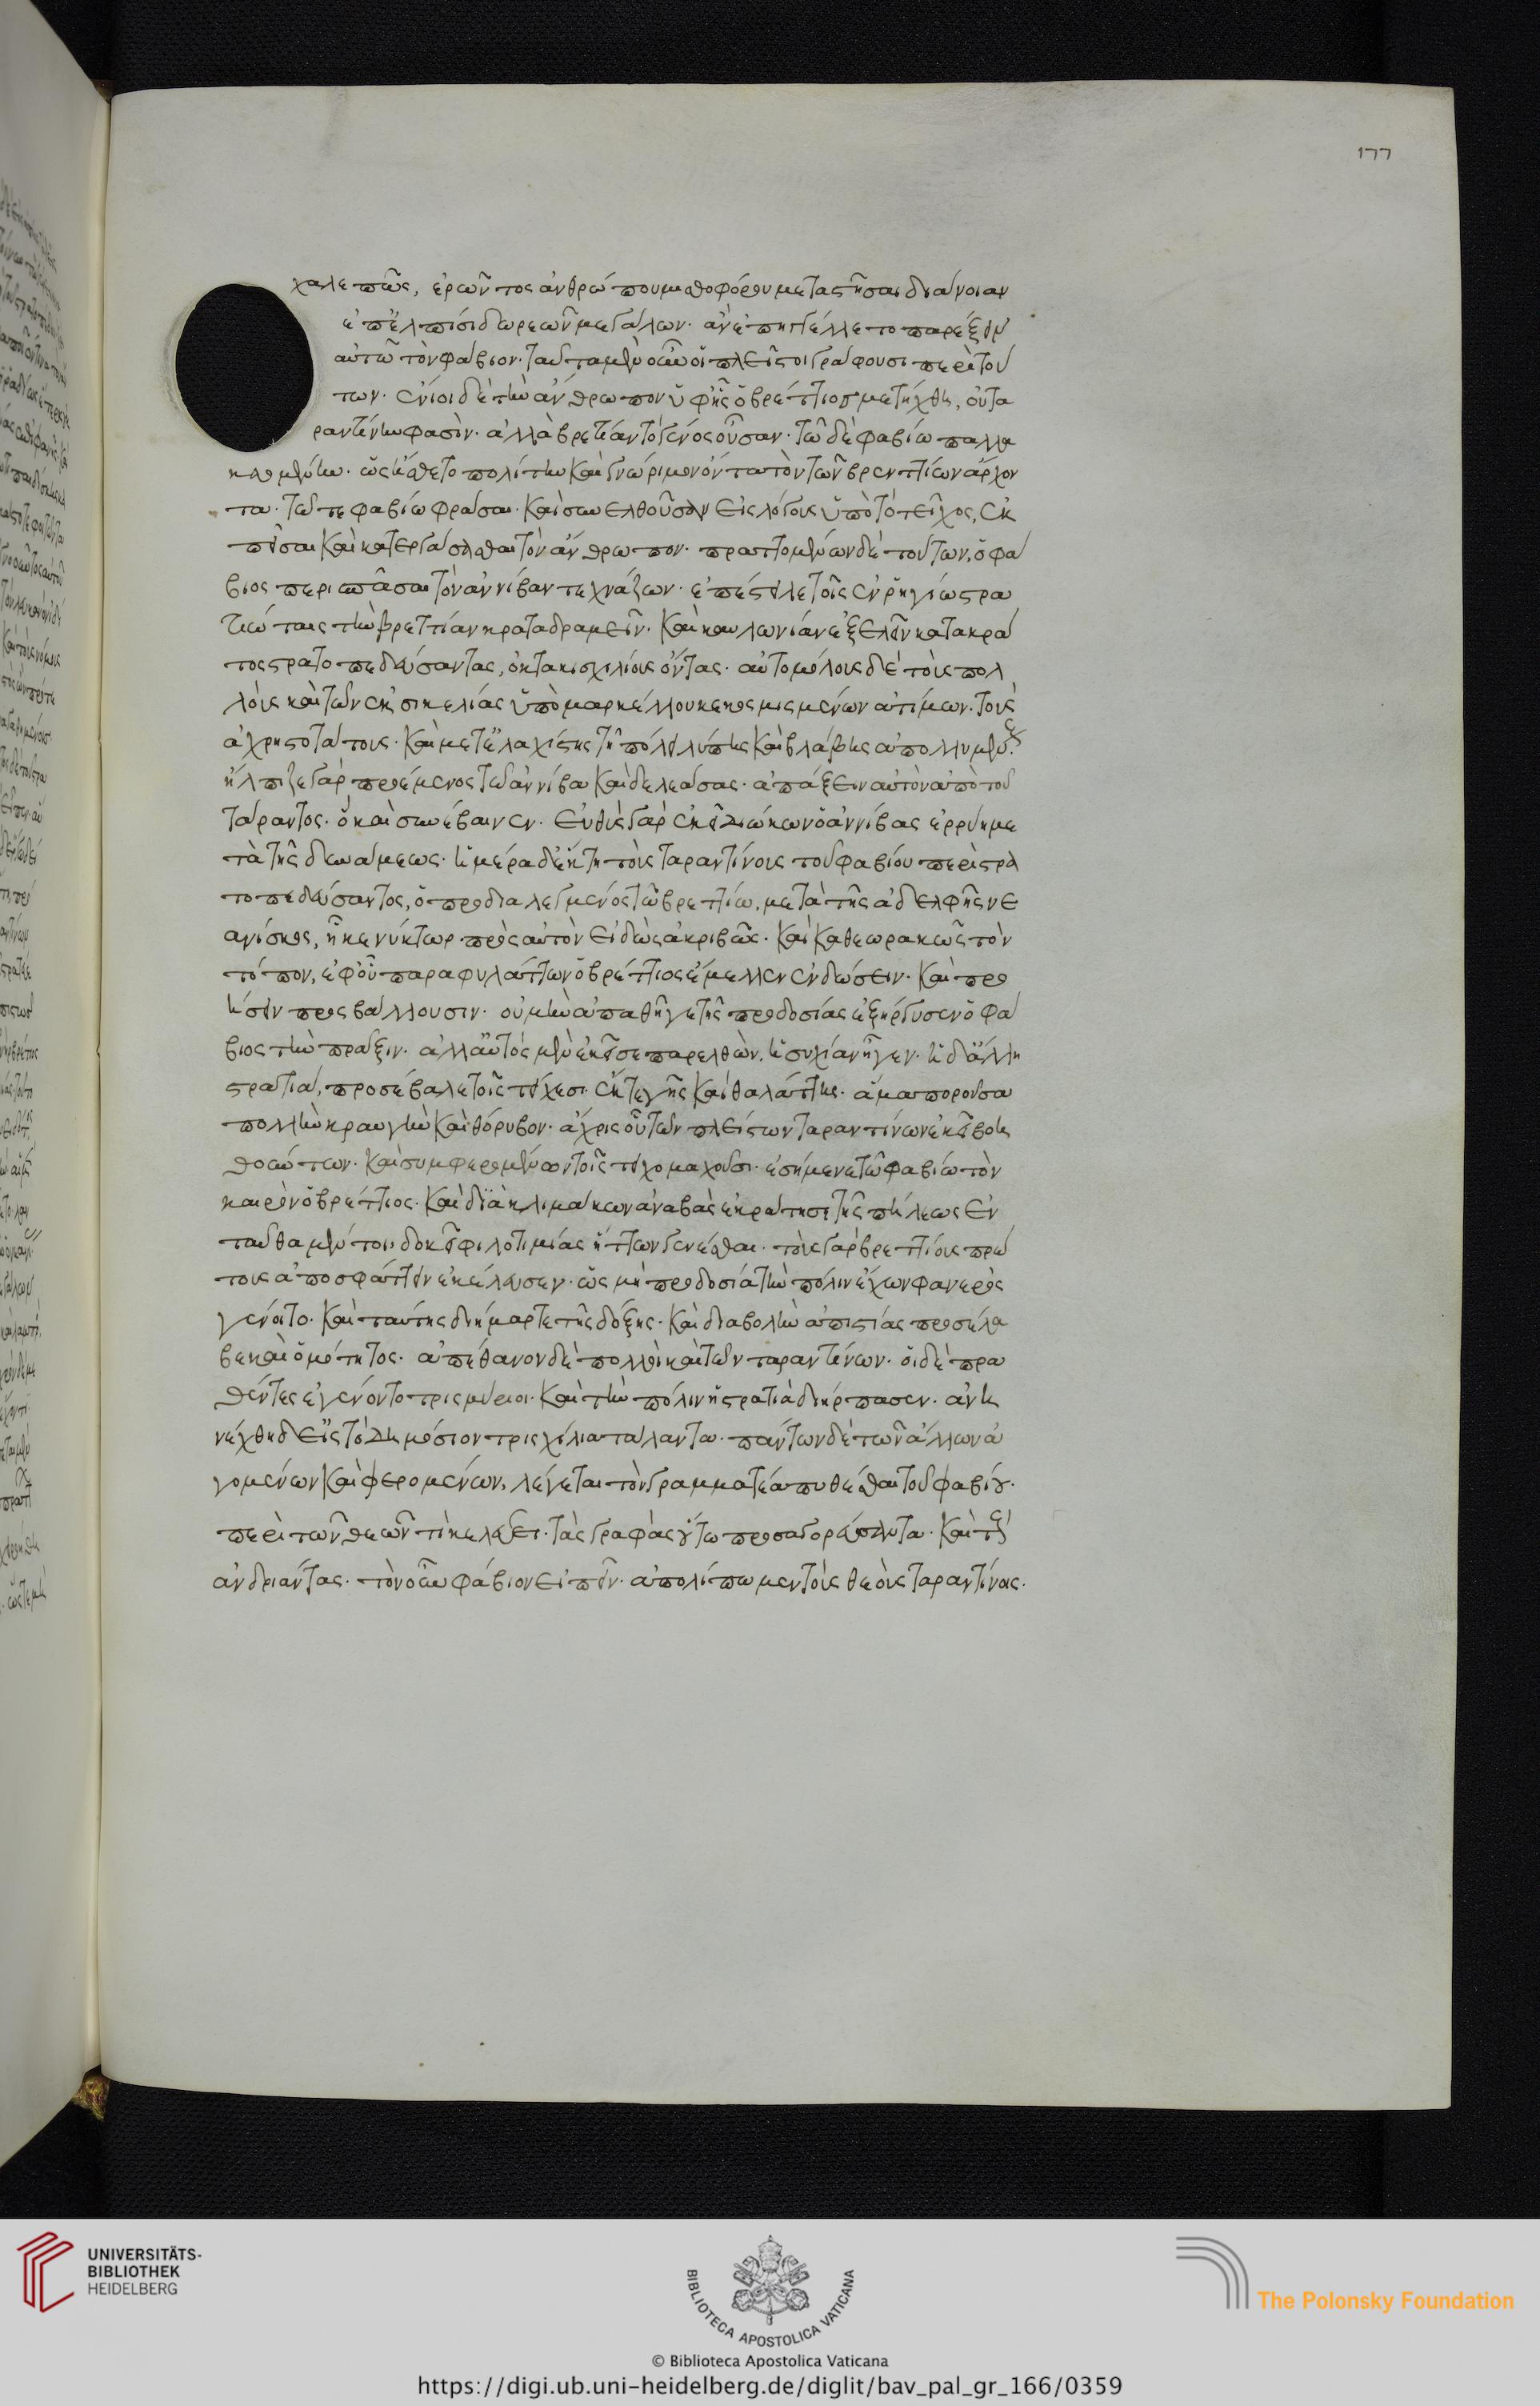 177
χαλεπῶς, ἐρῶντος ἀνθρώπου μισθοφόρου μεταστῆσαι διάνοιαν
ἐπ' ἐλπίσι δωρεῶν μεγάλων. ἃν ἐπηγγέλλετο παρέξειν
αὐτῶ τὸν φάβιον. ταῦτα μὲν οὖν οἱ πλεῖστοι γράφουσι περὶ τού
των. ἔνιοι δὲ τὴν ἄνθρωπον ὑφ' ἧς ὁ βρέττιος μετήχθη, οὐ τα
ραντίνην φασὶν. ἀλλὰ βρεττίαν τὸ γένος οὖσαν. τῶ δὲ φαβίω παλλα
κευομένην. ὡς ἤσθετο πολίτην καὶ γνώριμον ὄντα τὸν τῶν βρεντίων ἄρχον
τα. τῶ τε φαβίω φράσαι. καὶ συνελθοῦσαν εἰς λόγους ὑπὸ τὸ τεῖχος, ἐκ
πεῖσαι καὶ κατεργάσασθαι τὸν ἄνθρωπον. πραττομένων δὲ τούτων, ὁ φά
βιος περισπᾶσαι τὸν ἀννίβαν τεχνάζων. ἐπέστειλε τοῖς ἐν ῥηγίω στρα
τιώταις τὴν βρεττίαν καταδραμεῖν. καὶ καυλωνίαν ἐξελεῖν κατακρά
τος στρατοπεδεύσαντας, ὀκτακισχιλίους ὄντας. αὐτομόλους δὲ τοὺς πολ
λοὺς καὶ τῶν ἐκ σικελίας ὑπὸ μαρκέλλου κεκομισμένων ἀτίμων. τοὺς
ἀχρηστοτάτους. καὶ μετ' ἐλαχίστης τῇ πόλει λύπης καὶ βλάβης ἀπολλυμένους.
ἤλπιζε γὰρ προέμενος τῶ ἀννίβα καὶ δελεάσας. ἀπάξειν αὐτὸν ἀπὸ τοῦ
τάραντος. ὃ καὶ συνέβαινεν. εὐθὺς γὰρ ἐκεῖ διώκων ὁ ἀννίβας ἐρρύη με
τὰ τῆς δυνάμεως. ἡμέρα δ' ἕκτη τοὺς ταραντίνους τοῦ φαβίου περιστρα
τοπεδεύσαντος, ὁ προδιαλεγμένος τῶ βρεττίω, μετὰ τῆς ἀδελφῆς νε
ανίσκος, ἧκε νύκτωρ πρὸς αὐτὸν εἰδὼς ἀκριβῶς. καὶ καθεωρακὼς τὸν
τόπον, ἐφ' οὗ παραφυλάττων ὁ βρέττιος ἔμελλεν ἐνδώσειν. καὶ προ
ήσειν προσβάλλουσιν. οὐ μὴν ἁπαθῆ γε τῆς προδοσίας ἐξήρτυσεν ὁ φά
βιος τὴν πρᾶξιν. ἀλλ' αὐτὸς μὲν ἐκεῖσε παρελθὼν, ἡσυχίαν ἦγεν. ἡ δ' ἄλλη
στρατιὰ, προσέβαλε τοῖς τείχεσι. ἔκ τε γῆς καὶ θαλάττης. ἅμα ποροῦσα
πολλὴν κραυγὴν καὶ θόρυβον. ἄχρις οὗ τῶν πλείστων ταραντίνων ἐκεῖ βοη
θούντων. καὶ συμφερομένων τοῖς τειχομαχοῦσι. ἐσήμηνε τῶ φαβίω τὸν
καιρὸν ὁ βρέττιος. καὶ διὰ κλιμάκων ἀναβὰς ἐκράτησε τῆς πόλεως ἐν
ταῦθα μέντοι δοκεῖ φιλοτιμίας ἥττων γενέσθαι. τοὺς γὰρ βρεττίους πρώ
τους ἀποσφάττειν ἐκέλευσεν. ὡς μὴ προδοσία τὴν πόλιν ἔχων φανερὸς
γένοιτο. καὶ ταύτης διήμαρτε τῆς δόξης. καὶ διαβολὴν ἀπιστίας προσέλα
βε καὶ ὠμότητος. ἀπέθανον δὲ πολλοὶ καὶ τῶν ταραντίνων. οἱ δὲ πρα
θέντες ἐγένοντο τρισμύριοι. καὶ τὴν πόλιν ἡ στρατιὰ διήρπασεν. ἀνη
νέχθη δ' εἰς τὸ δημόσιον τρισχίλια τάλαντα. πάντων δὲ τῶν ἄλλων ἀ
γομένων καὶ φερομένων, λέγεται τὸν γραμματέα πυθέσθαι τοῦ φαβίου.
περὶ τῶν θεῶν τί κελεύει. τὰς γραφὰς οὕτω προσαγορεύσαντα. καὶ τοὺς
ἀνδριάντας. τὸν οὖν φάβιον εἰπεῖν. ἀπολίπωμεν τοὺς θεοὺς ταραντίνοις.
UNIVERSITÄTS-
BIBLIOTHEK
HEIDELBERG
BIBLIOTECA APOSTOLICA VATICANA
The Polonsky Foundation
© Biblioteca Apostolica Vaticana
https://digi.ub.uni-heidelberg.de/diglit/bav_pal_gr_166/0359